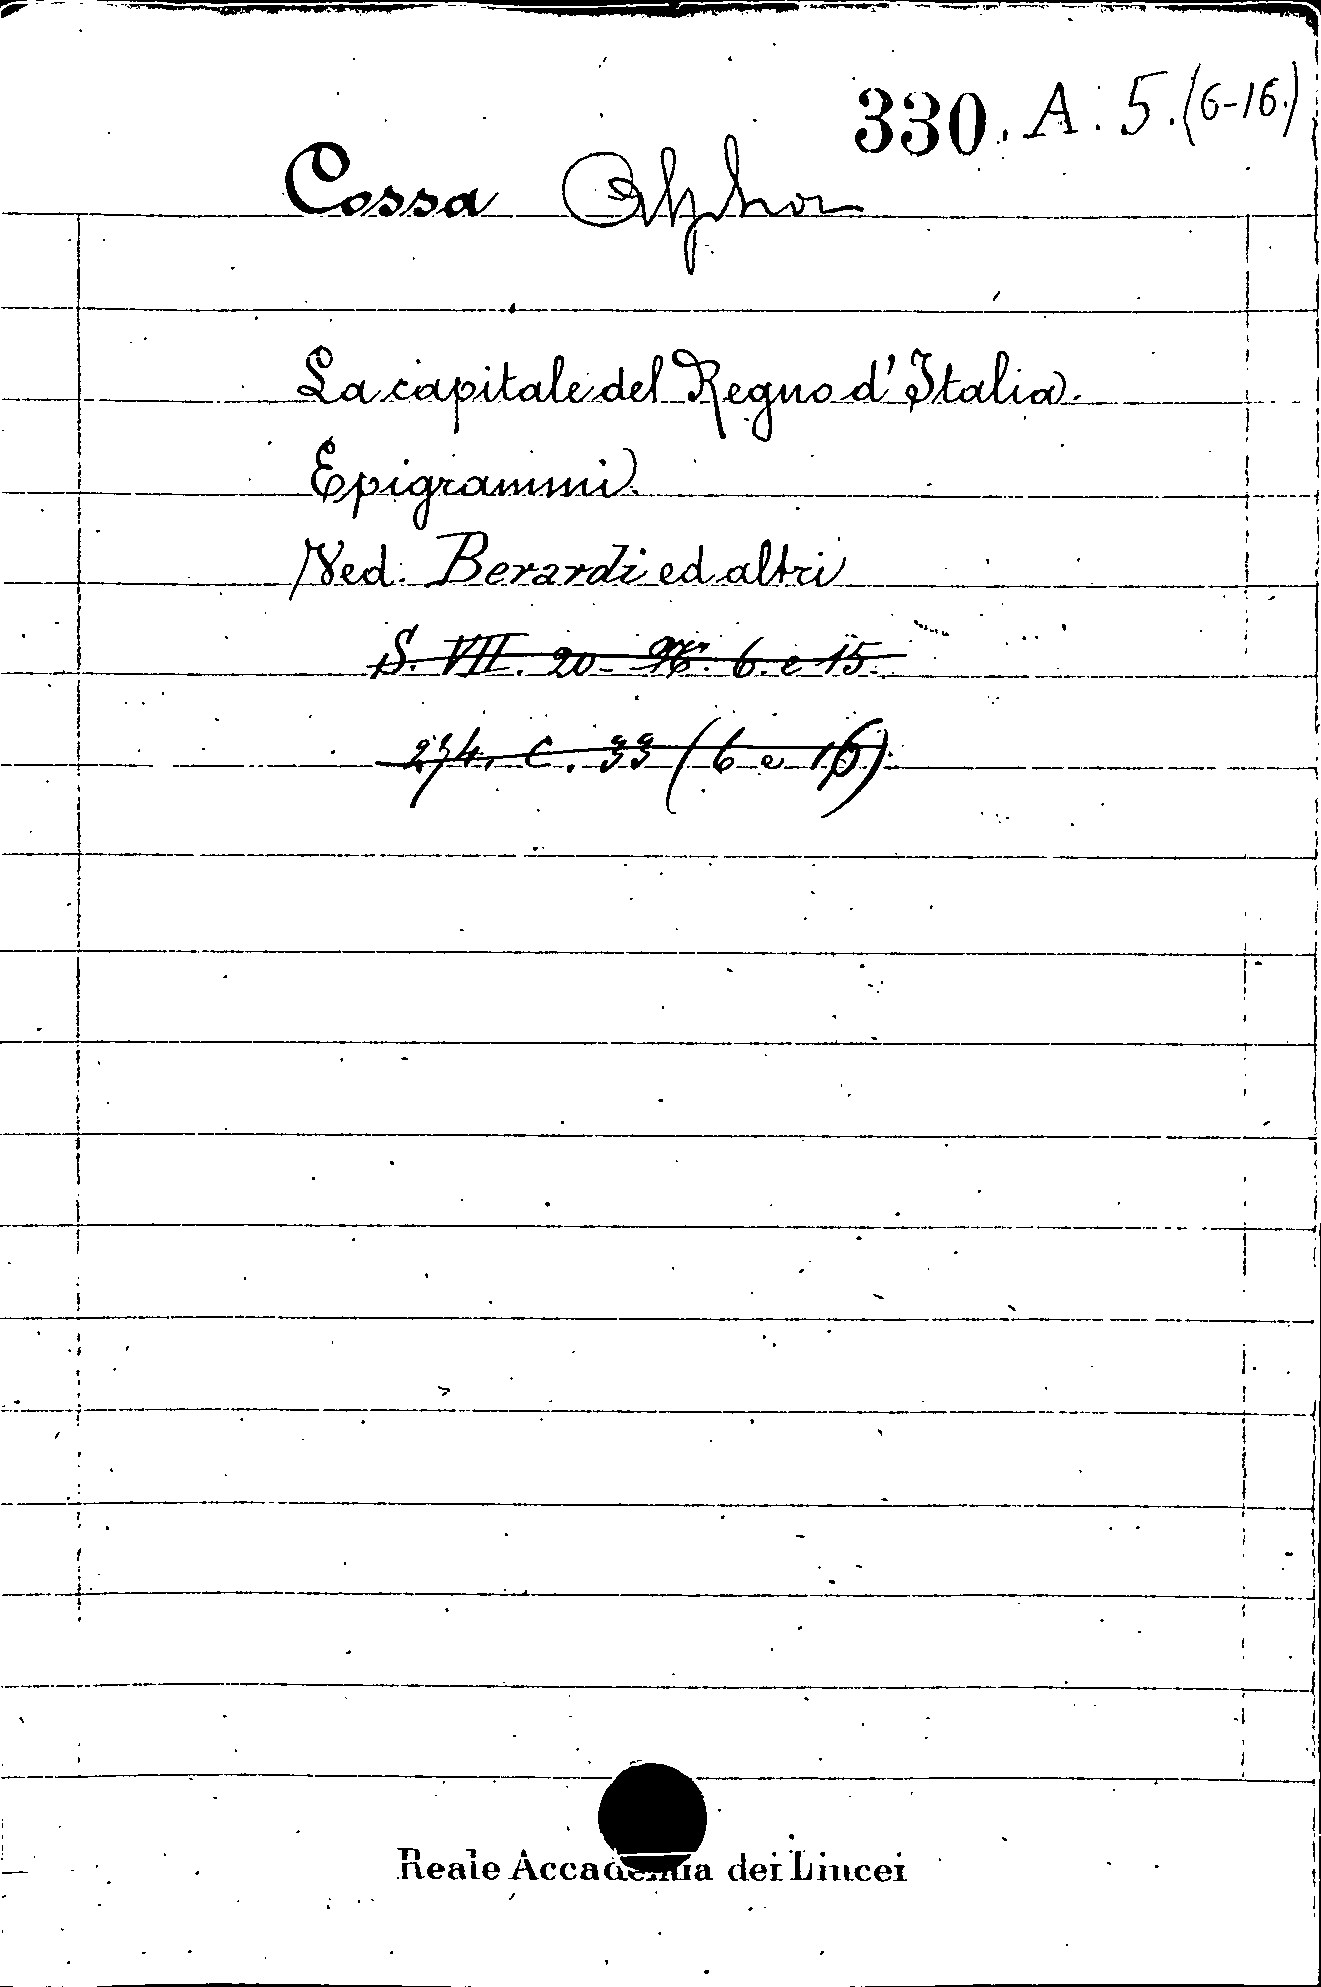 330. A. 5. (6-16.)
Cossa Alphon
La capitale del Regno d'Italia.
Epigrammi.
Ved. Berardi ed altri
S. VII. 20- 6. e 15.
274. C. 33 (6 e 16)
Reale Accademia dei Lincei